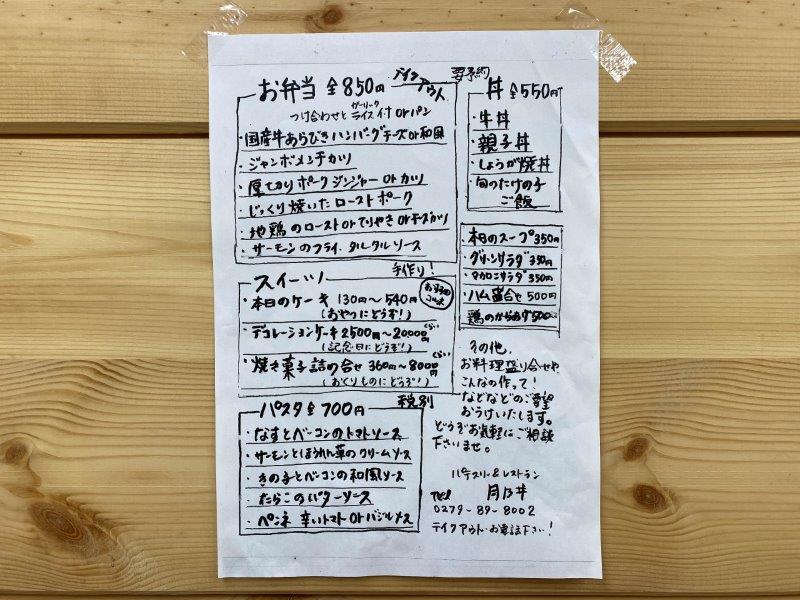 お弁当 全850円
テイクアウト
要予約
つけ合わせと ガーリックライス付 or パン
・国産牛あらびきハンバーグチーズor和風
・ジャンボメンチカツ
・厚切りポークジンジャー or カツ
・じっくり焼いたローストポーク
・地鶏のローストorてりやきorチーズカツ
・サーモンのフライ、タルタルソース
丼 全550円
・牛丼
・親子丼
・しょうが焼丼
・旬のたけの子
ご飯
・本日のスープ350円
・グリーンサラダ350円
・マカロニサラダ350円
・ハム盛合せ500円
・鶏のからあげ500
スイーツ
手作り!
・本日のケーキ 130円〜540円
(おやつにどうぞ!)
・デコレーションケーキ2500円〜20000円くらい
(記念日にどうぞ!)
・焼き菓子詰の合せ 360円〜8000円くらい
(おくりものにどうぞ!)
パスタ全700円
税別
・なすとベーコンのトマトソース
・サーモンとほうれん草のクリームソース
・きの子とベーコンの和風ソース
・たらこのバターソース
・ペンネ 辛いトマトorバジルソース
その他、
お料理盛り合せや
こんなの作って!
などなどのご要望
おうけいたします。
どうぞお気軽にご相談
下さいませ。
パティスリー&レストラン
月乃井
Tel
0279-89-8002
テイクアウト・お電話下さい!